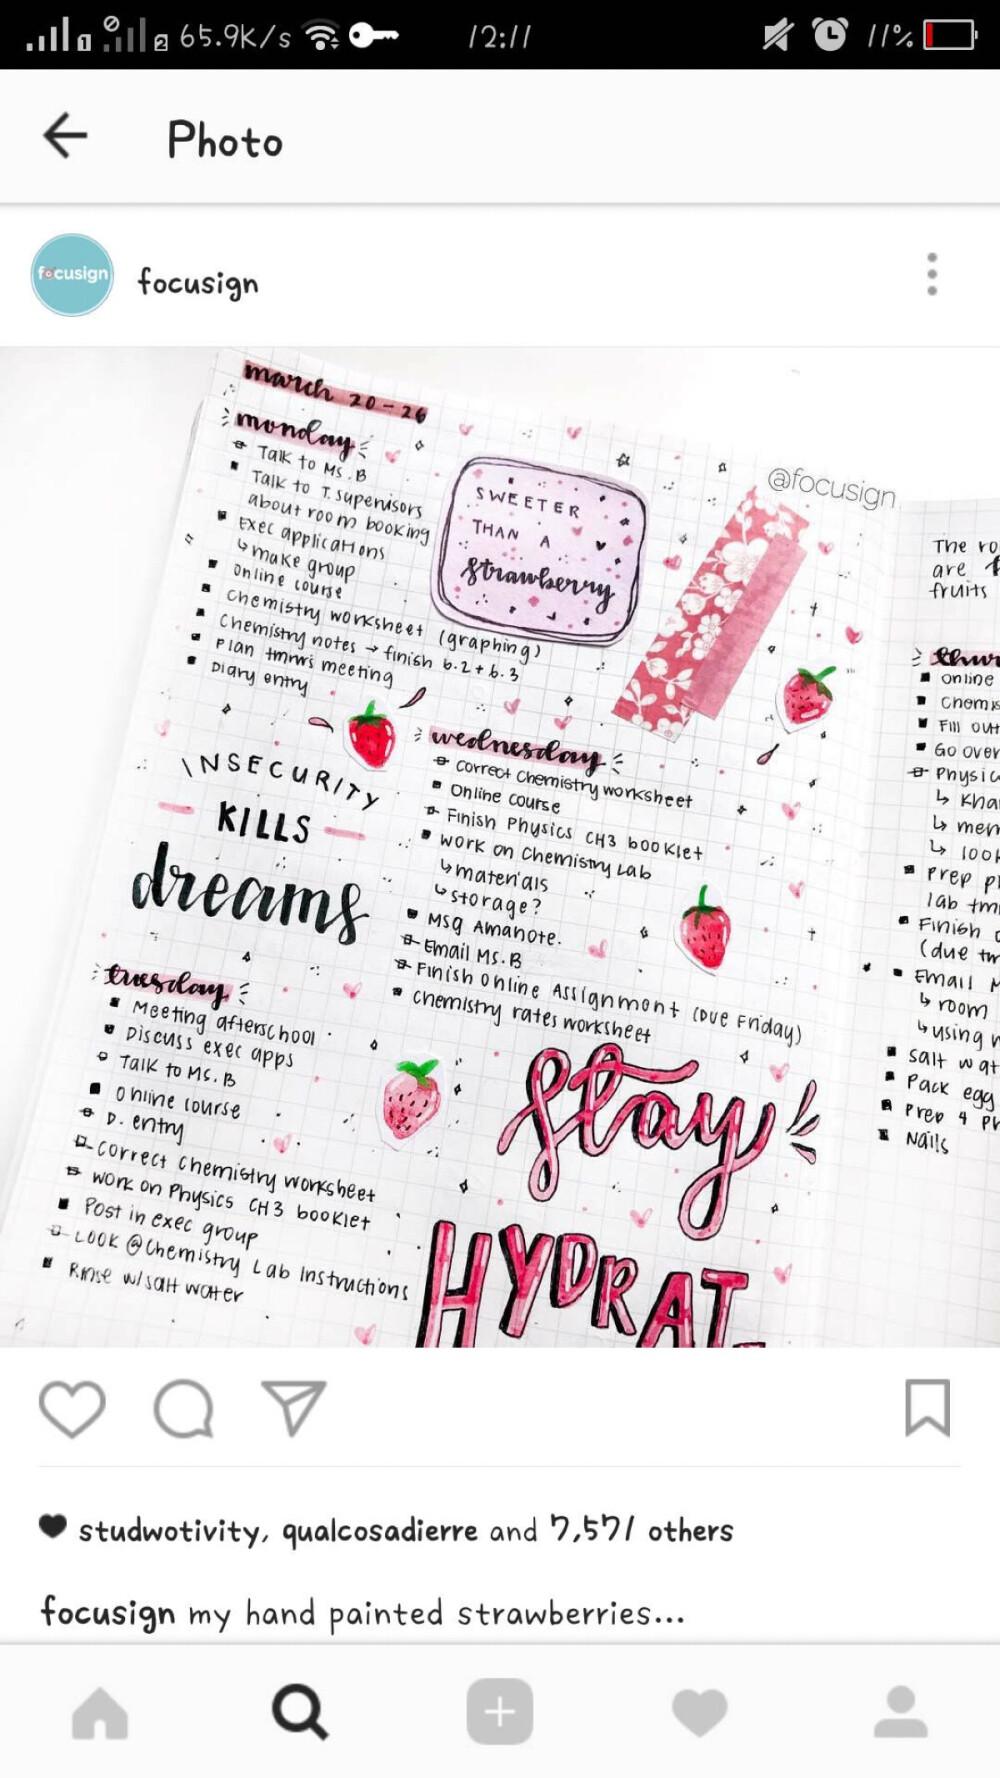 65.9K/s
12:11
11%
Photo
focusign
focusign
@focusign
march 20-26
monday
Talk to Ms. B
Talk to T. supervisors
about room booking
Exec applications
↳ make group
online course
Chemistry worksheet (graphing)
Chemistry notes → finish 6.2 + 6.3
Plan tmrw's meeting
Diary entry
SWEETER
THAN A
strawberry
INSECURITY
KILLS
dreams
tuesday
Meeting afterschool
Discuss exec apps
Talk to Ms. B
online course
D. entry
correct chemistry worksheet
work on Physics CH3 booklet
Post in exec group
LOOK @Chemistry Lab Instructions
Rinse w/ salt water
wednesday
correct chemistry worksheet
Online course
Finish Physics CH3 booklet
work on Chemistry Lab
↳ materials
↳ storage?
Msg Amanote.
Email Ms. B
Finish Online Assignment (Due Friday)
Chemistry rates worksheet
stay
HYDRAT
The ro
are
fruits
thur
online
Chemis
Fill out
Go over
Physic
↳ Kha
↳ mem
↳ look
Prep p
lab tm
Finish
(due tm
Email M
↳ room
↳ using
salt wat
Pack egg
Prep 4 Pr
Nails
studwotivity, qualcosadierre and 7,571 others
focusign my hand painted strawberries...